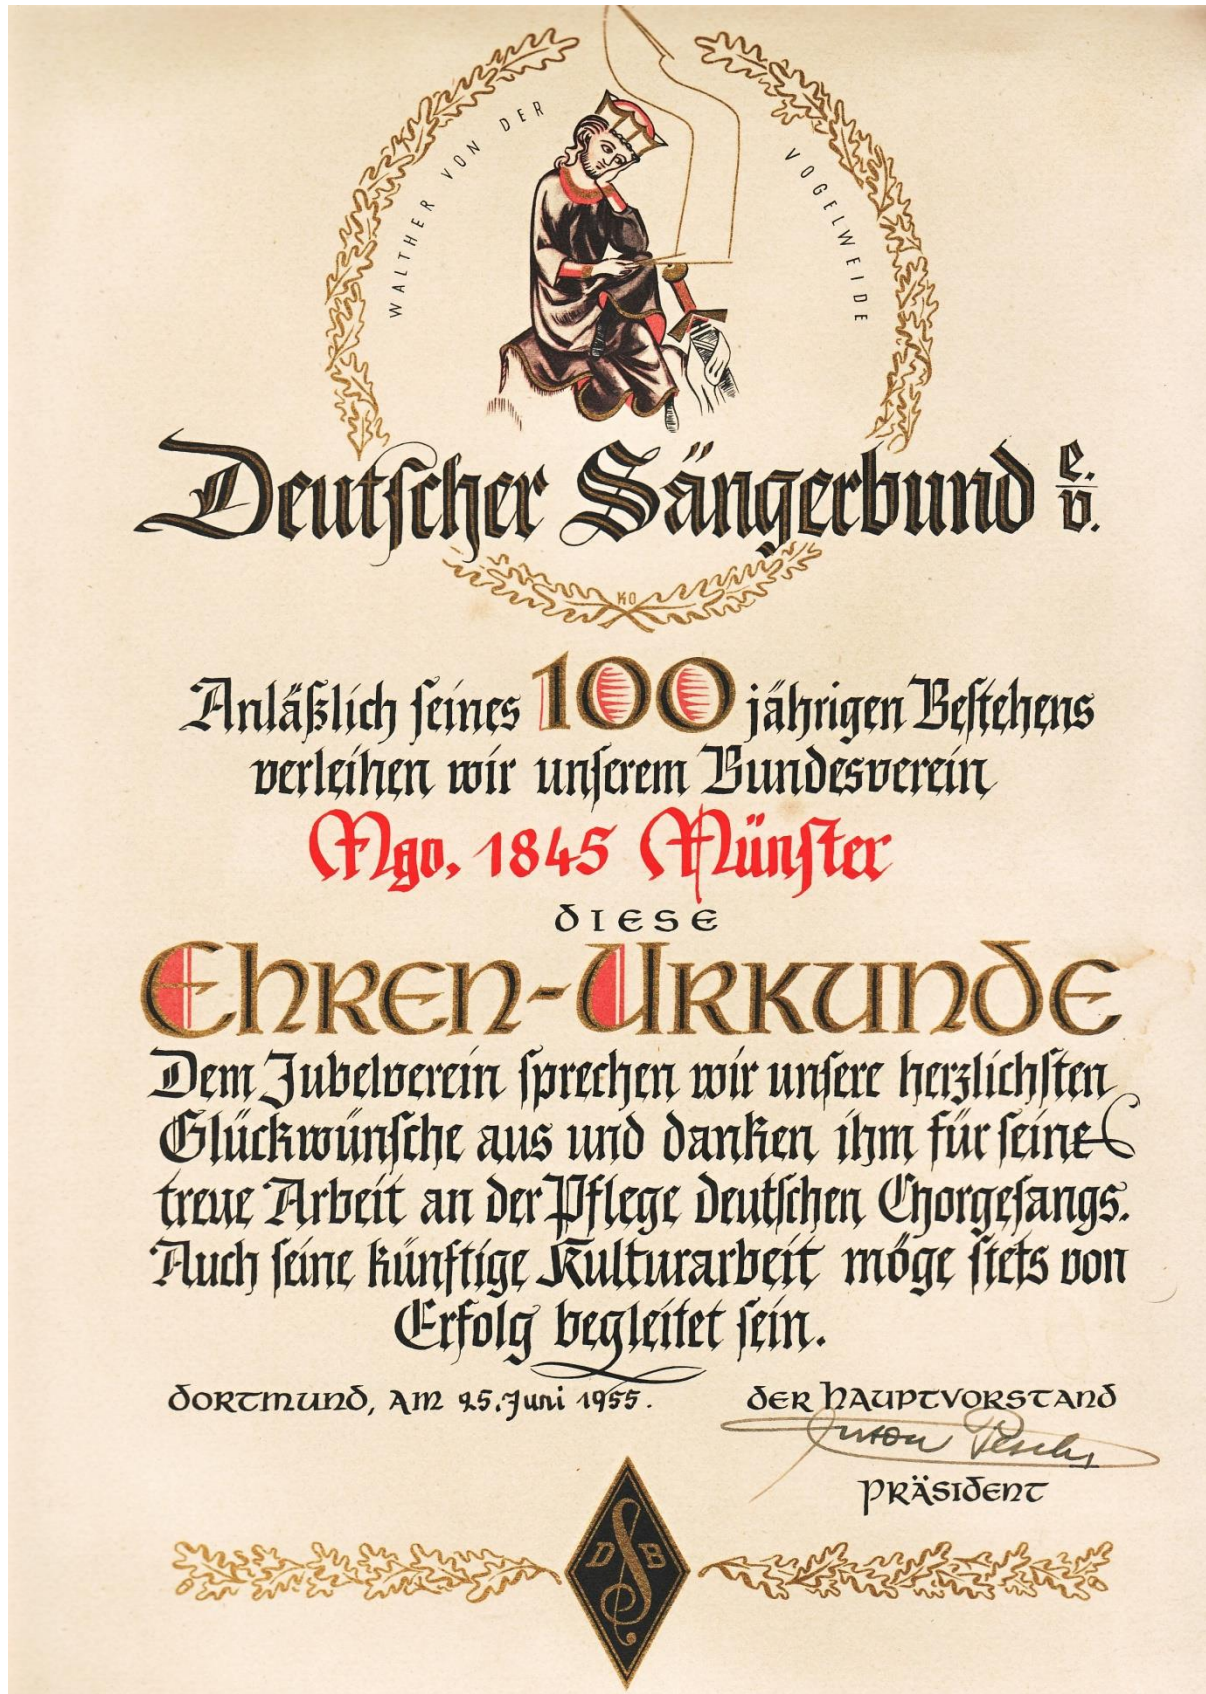 WALTHER VON DER VOGELWEIDE
Deutscher Sängerbund e.v.
KO
Anläßlich seines 100 jährigen Bestehens
verleihen wir unserem Bundesverein
Mgv. 1845 Münster
DIESE
EHREN-URKUNDE
Dem Jubelverein sprechen wir unsere herzlichsten
Glückwünsche aus und danken ihm für seine
treue Arbeit an der Pflege deutschen Chorgesangs.
Auch seine künftige Kulturarbeit möge stets von
Erfolg begleitet sein.
DORTMUND, AM 25. Juni 1955.
DER HAUPTVORSTAND
PRÄSIDENT
DSB